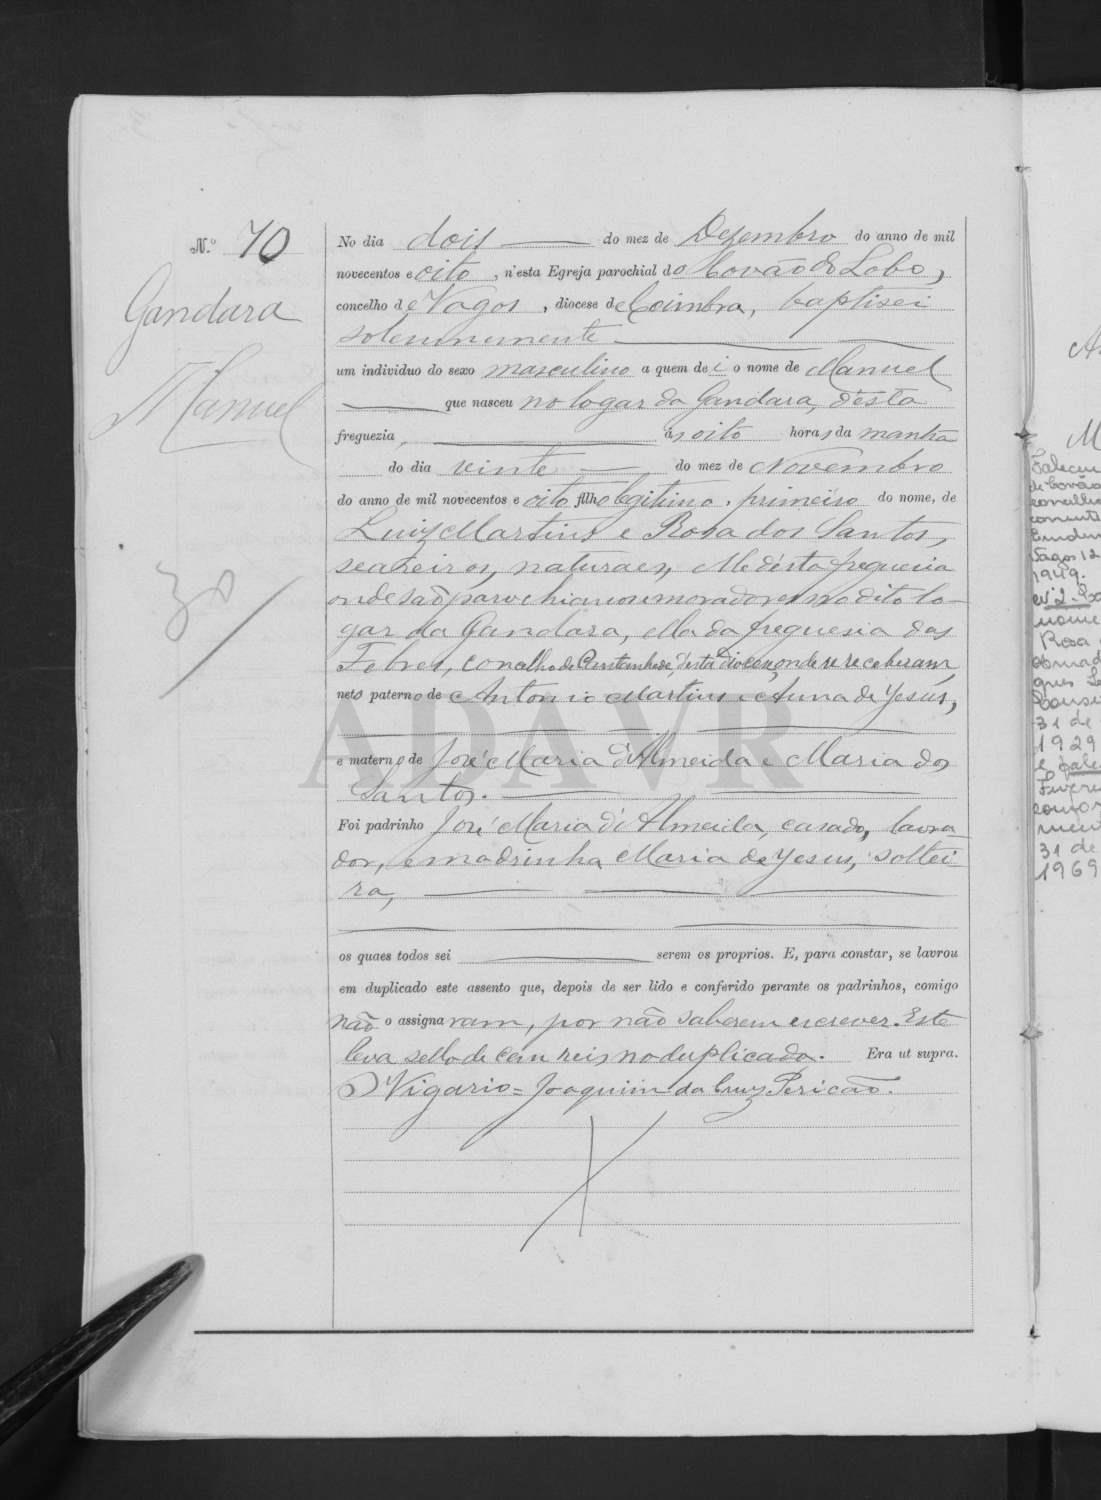 N.º 70
Gandara
Manuel
30
No dia dois do mez de Dezembro do anno de mil
novecentos e oito, n'esta Egreja parochial do Covão do Lobo,
concelho de Vagos, diocese de Coimbra, baptisei
solemnemente
um individuo do sexo masculino a quem dei o nome de Manuel
que nasceu no logar da Gandara, d'esta
freguezia, ás oito horas da manhã
do dia vinte do mez de Novembro
do anno de mil novecentos e oito filho legitimo, primeiro do nome, de
Luiz Martins e Rosa dos Santos,
seareiros, naturaes, elle d'esta freguesia
onde são parochianos e moradores no dito lo-
gar da Gandara, ella da freguesia das
Febres, concelho de Cantanhede, d'esta diocese, onde se receberam,
neto paterno de Antonio Martins e Anna de Yesus,
ADAVR
e materno de José Maria d'Almeida e Maria dos
Santos.
Foi padrinho José Maria d'Almeida, casado, lavra-
dor, e madrinha Maria de Yesus, soltei-
ra,
os quaes todos sei serem os proprios. E, para constar, se lavrou
em duplicado este assento que, depois de ser lido e conferido perante os padrinhos, comigo
não o assignaram, por não saberem escrever. Este
leva sello de cem reis no duplicado. Era ut supra.
O Vigario = Joaquim da Cruz Pericão.
Faleceu
de Covão
concelho
Vagos 12
1949.
nº 2.
nome
Rosa
31 de
1929
e fale
31 de
1969